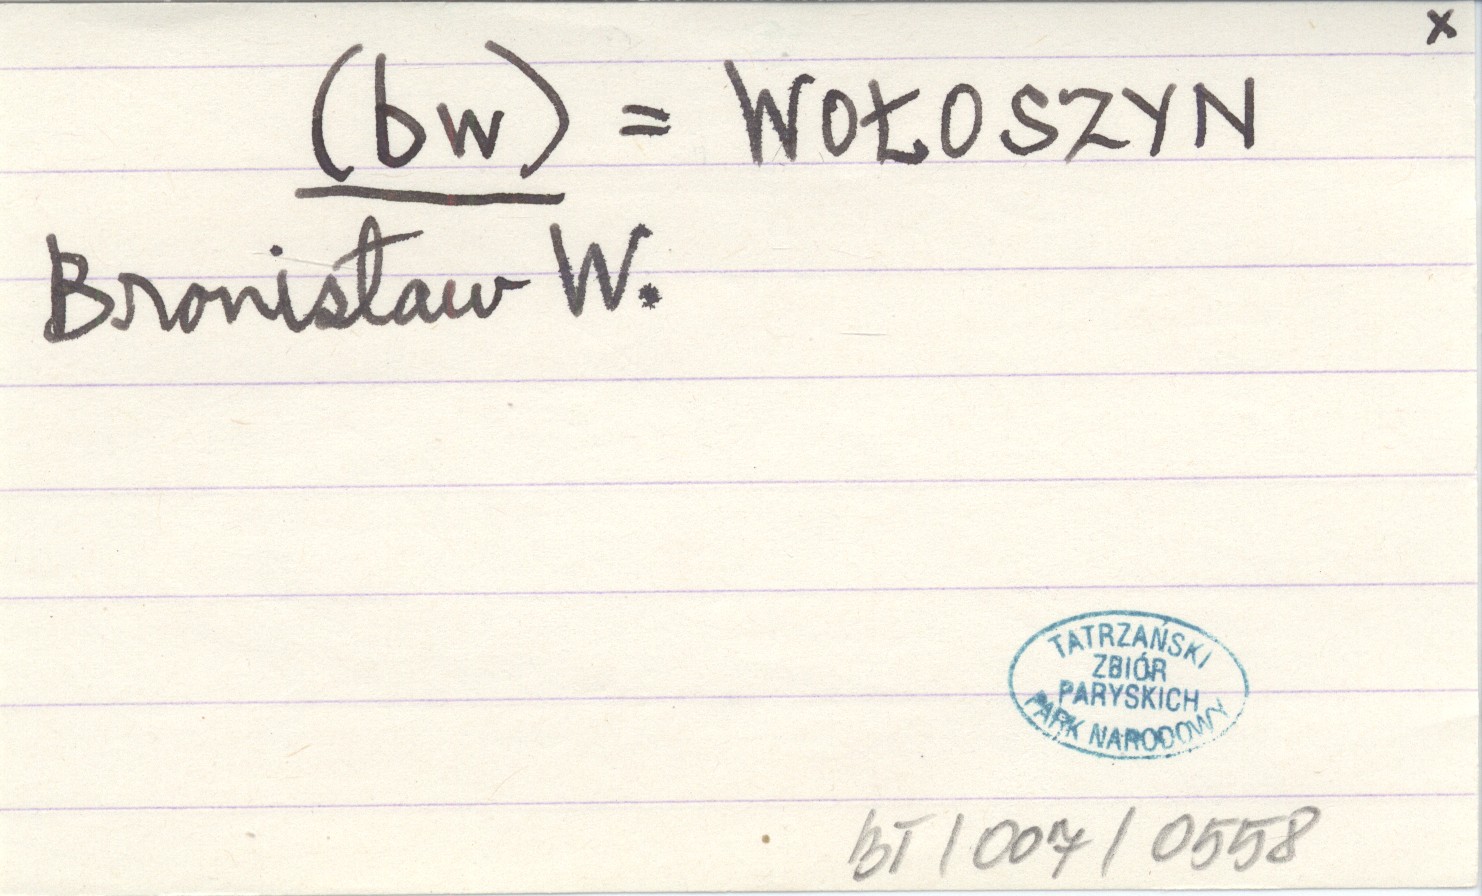 x
(bw) = WOŁOSZYN
Bronisław W.
TATRZAŃSKI
ZBIÓR
PARYSKICH
PARK NARODOWY
BT/007/0558